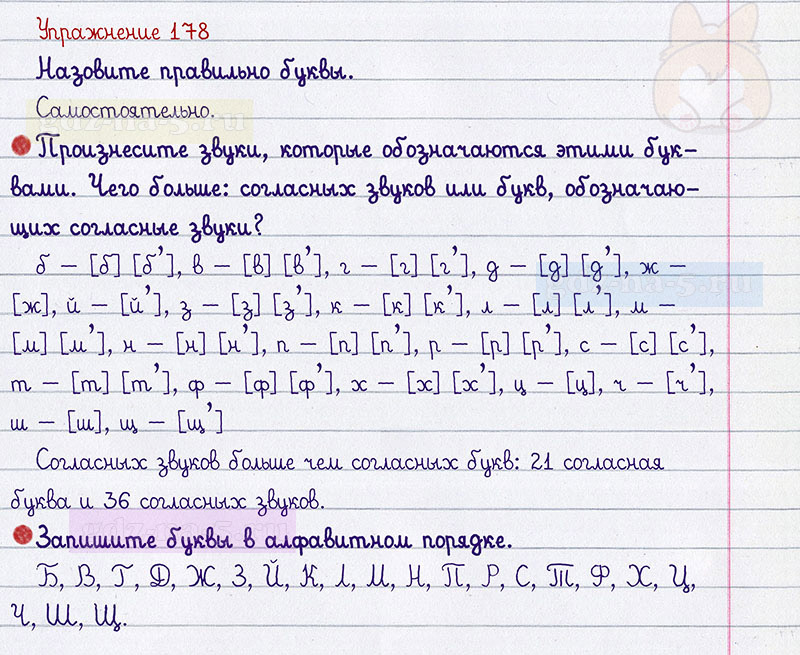 Упражнение 178
Назовите правильно буквы.
Самостоятельно.
Произнесите звуки, которые обозначаются этими бук-
вами. Чего больше: согласных звуков или букв, обозначаю-
щих согласные звуки?
б – [б] [б’], в – [в] [в’], г – [г] [г’], д – [д] [д’], ж –
[ж], й – [й’], з – [з] [з’], к – [к] [к’], л – [л] [л’], м –
[м] [м’], н – [н] [н’], п – [п] [п’], р – [р] [р’], с – [с] [с’],
т – [т] [т’], ф – [ф] [ф’], х – [х] [х’], ц – [ц], ч – [ч’],
ш – [ш], щ – [щ’]
Согласных звуков больше чем согласных букв: 21 согласная
буква и 36 согласных звуков.
Запишите буквы в алфавитном порядке.
Б, В, Г, Д, Ж, З, Й, К, Л, М, Н, П, Р, С, Т, Ф, Х, Ц,
Ч, Ш, Щ.